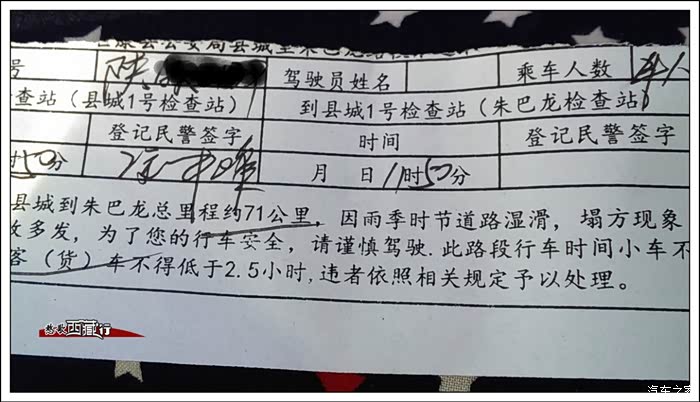 芒康县公安局县城至朱巴龙
号 陕 驾驶员姓名 乘车人数 单人
查站（县城1号检查站） 到县城1号检查站（朱巴龙检查站）
登记民警签字 时间 登记民警签字
时50分 月 日 11时50分
县城到朱巴龙总里程约71公里，因雨季时节道路湿滑，塌方现象
多发，为了您的行车安全，请谨慎驾驶.此路段行车时间小车不
客（货）车不得低于2.5小时,违者依照相关规定予以处理。
西藏行
汽车之家